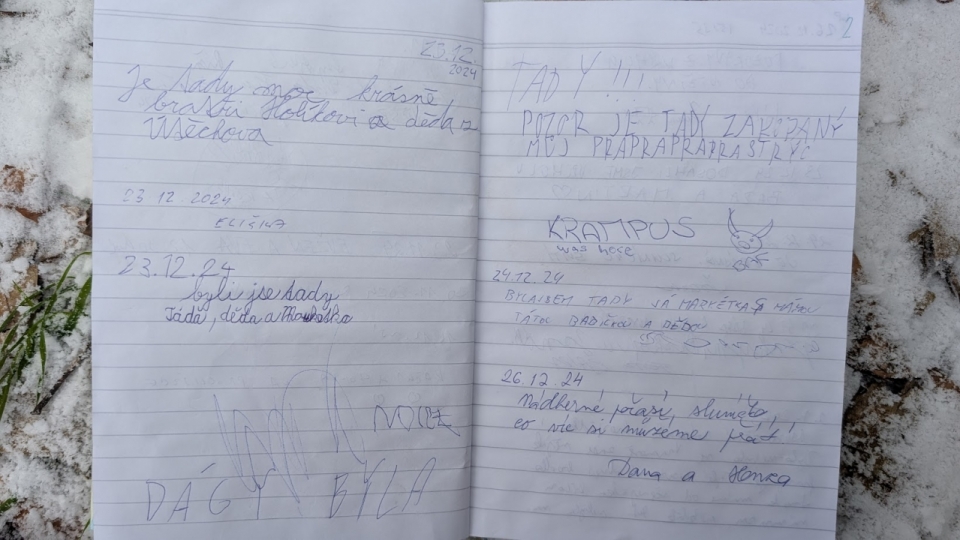 23.12.
2024
Je tady moc krásně,
bratři Holíkovi a děda z
Útěchova
23 12 2024
ELIŠKA
23.12.24
byli jse tady
Jáďa, děda a
DÁGY BYLA
TADY!!!
POZOR JE TADY ZAKOPANÝ
MŮJ PRAPRAPRAPRASTRÝC
KRAMPUS
was here
24.12.24
BYLAJSEM TADY JÁ MARKÉTKA S MÁMOU
TÁTOU BABIČKOU A DĚDOU
26.12.24
Nádherné počasí, sluníčko,
co víc si můžeme přát,
Dana a Honza